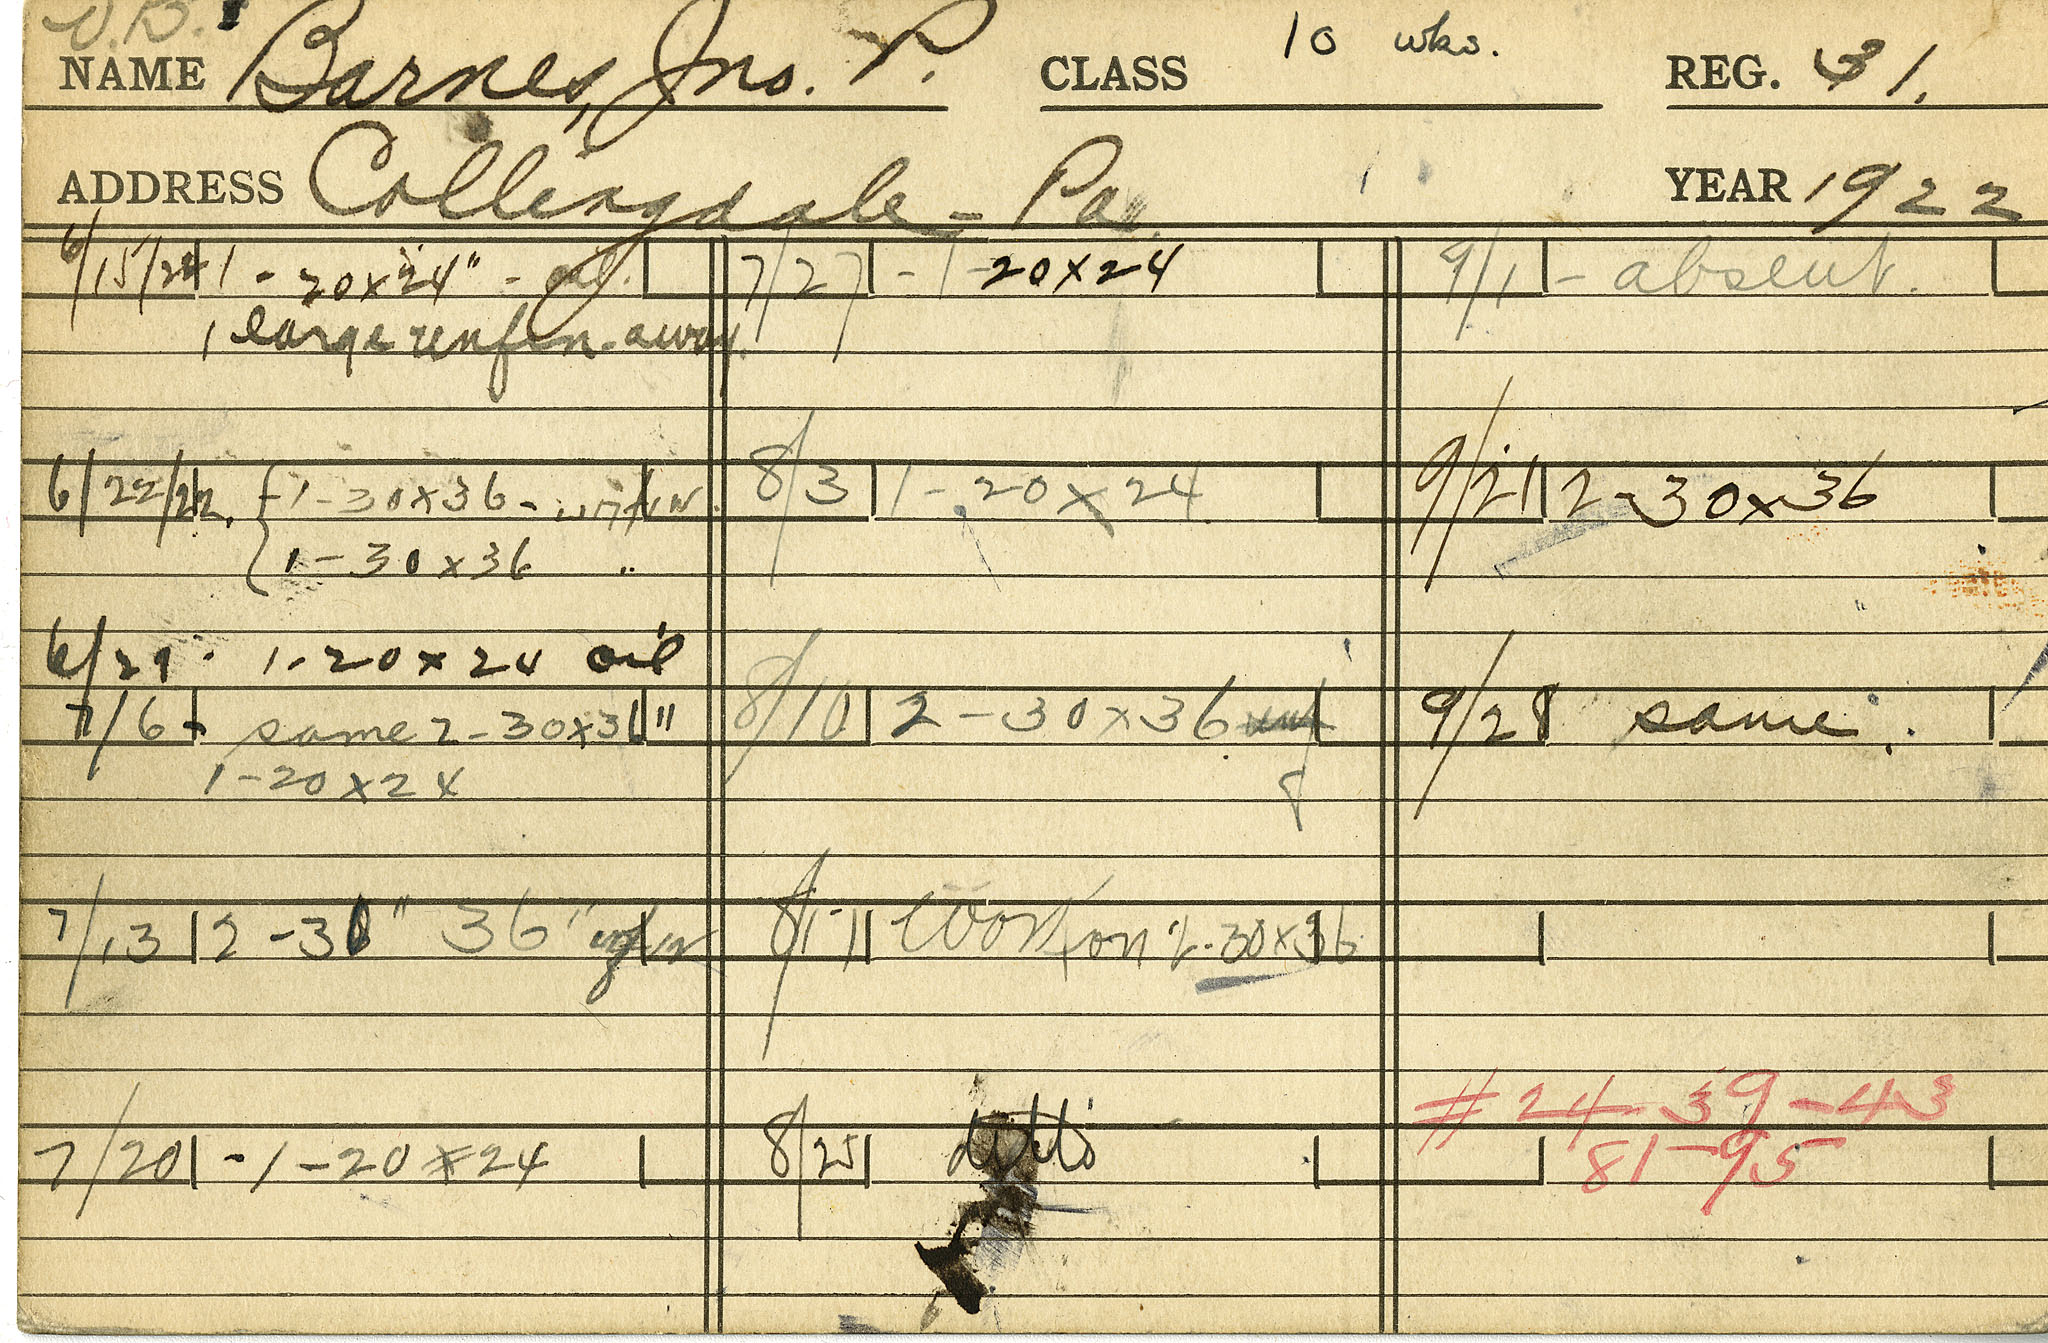 NAME Barnes, Jno. P. CLASS 10 wks. REG. 31.
ADDRESS Collingdale - Pa. YEAR 1922
6/15/22 1 - 20x24" - oil.
1 large unfin. away.
6/22/22. 1-30x36 - unfin.
1-30x36 "
6/29. 1-20x24 oil
7/6 - same 2-30x36 "
1-20x24
7/13 2-30" 36" unfin
7/20 - 1-20x24
7/27 - 1-20x24
8/3 1-20x24
8/10 2-30x36
8/17 Work on 2-30x36
8/25 ditto
9/1 - absent.
9/21 2-30x36
9/28 same.
# 24-39-43
81-95